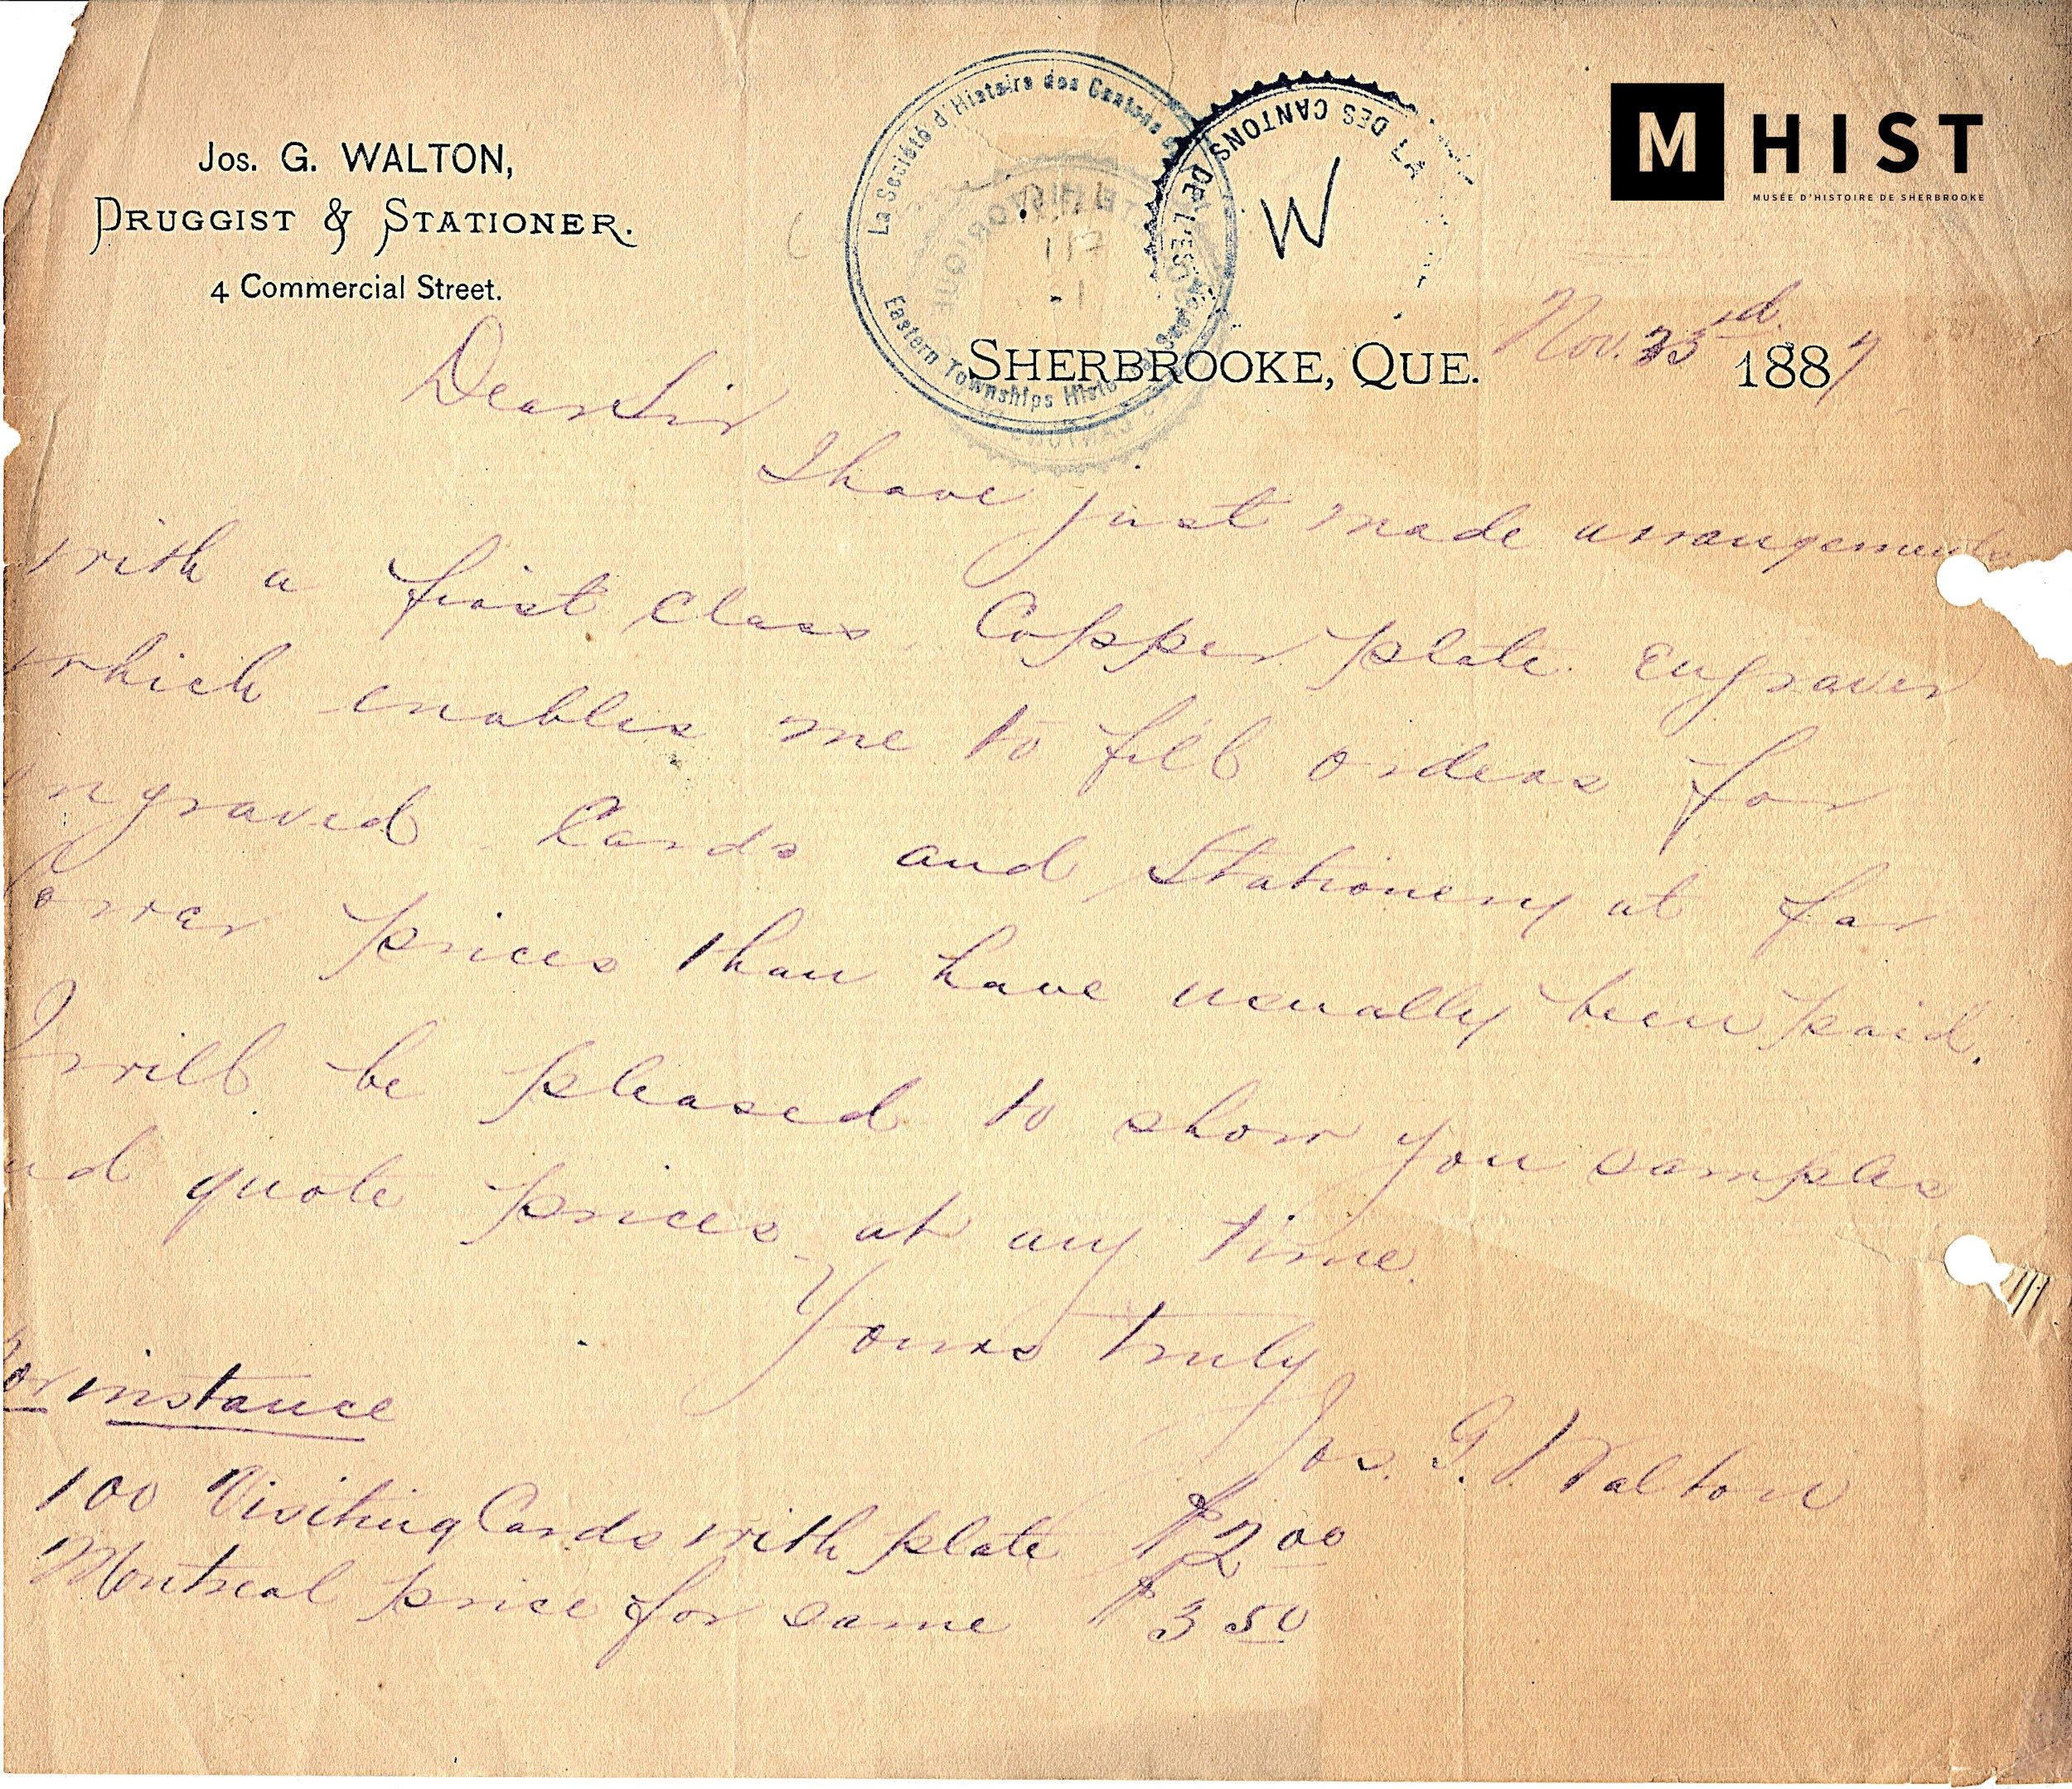 Jos. G. WALTON,
DRUGGIST & STATIONER.
4 Commercial Street.
La Société d'Histoire des Cantons
Eastern Townships Historical Society
DE LA
DES CANTONS
DE L'ES
W
117
M HIST
MUSÉE D'HISTOIRE DE SHERBROOKE
SHERBROOKE, QUE. Nov. 23rd 1887
Dear Sir
I have just made arrangements
with a first class Copper plate engraver
which enables me to fill orders for
ngraved Cards and Stationery at far
lower prices than have usually been paid.
I will be pleased to show you samples
nd quote prices at any time.
Yours truly
Jos. G. Walton
For instance
100 Visiting Cards with plate $2 00
Montreal price for same $3 50